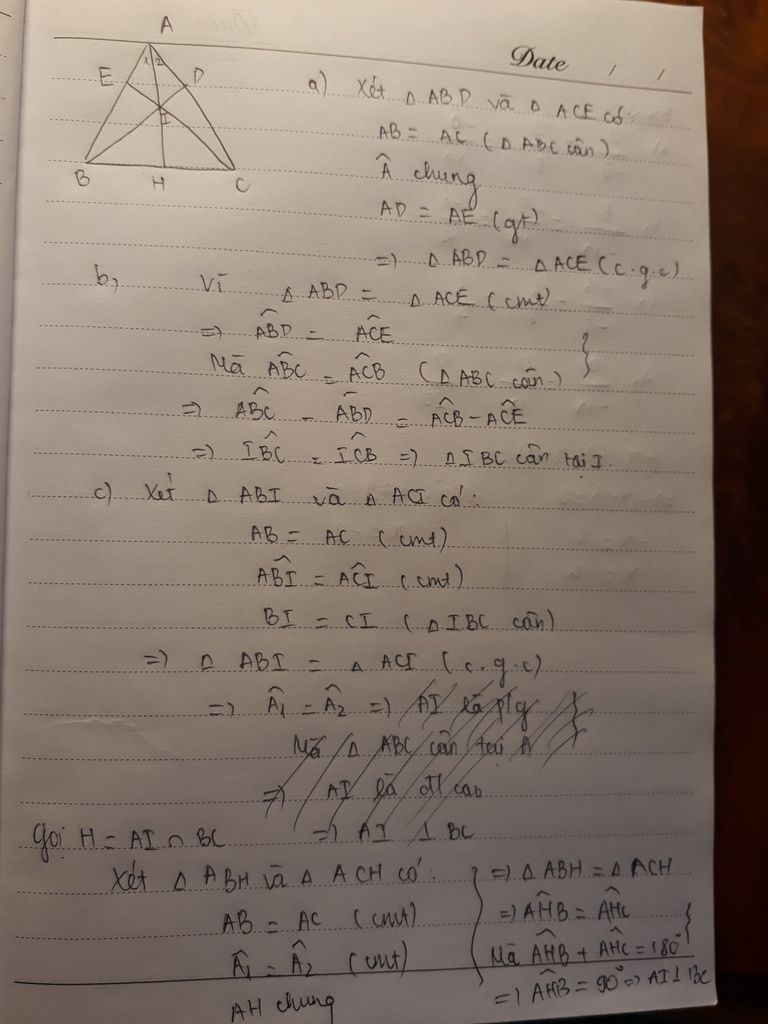 A
Date / /
E
1 2
D
I
B
H
C
a) Xét Δ ABD và Δ ACE có:
AB = AC ( Δ ABC cân )
Â chung
AD = AE (gt)
=) Δ ABD = Δ ACE ( c.g.c )
b, Vì Δ ABD = Δ ACE ( cmt )
=) ABD̂ = ACÊ
Mà ABĈ = ACB̂ ( Δ ABC cân ) }
=) ABĈ - ABD̂ = ACB̂ - ACÊ
=) IBĈ = ICB̂ =) Δ IBC cân tại I.
c) Xét Δ ABI và Δ ACI có:
AB = AC ( cmt )
ABÎ = ACÎ ( cmt )
BI = CI ( Δ IBC cân )
=) Δ ABI = Δ ACI ( c.g.c )
=) Â1 = Â2 =) AI là p/g }
Mà Δ ABC cân tại A
=) AI là đ cao
Gọi H = AI ∩ BC =) AI ⊥ BC
Xét Δ ABH và Δ ACH có:
AB = AC ( cmt )
Â1 = Â2 ( cmt )
AH chung
=) Δ ABH = Δ ACH
=) AHB̂ = AHĈ
Mà AHB̂ + AHĈ = 180° }
=) AHB̂ = 90° =) AI ⊥ BC